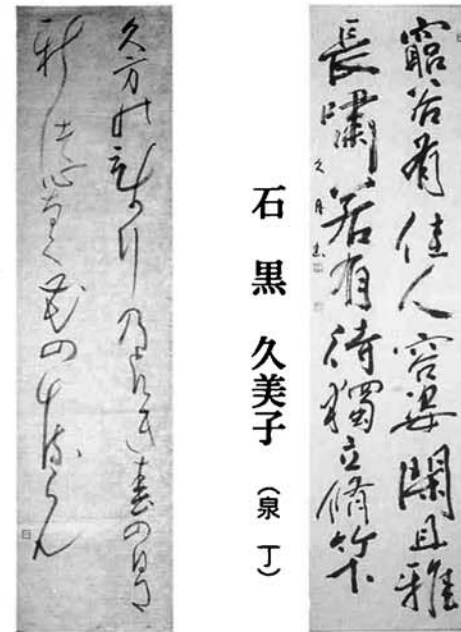 窮谷有佳人容姿閑且雅
長嘯若有待獨立脩竹下
石黒 久美子 (泉 丁)
久方のひかり乃どけき春の日に
しづ心なく花のちるらん